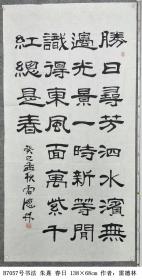 勝日尋芳泗水濱無
邊光景一時新等閒
識得東風面萬紫千
紅總是春
癸巳孟秋雷德林
B7057号书法 朱熹 春日 138×68cm 作者:雷德林